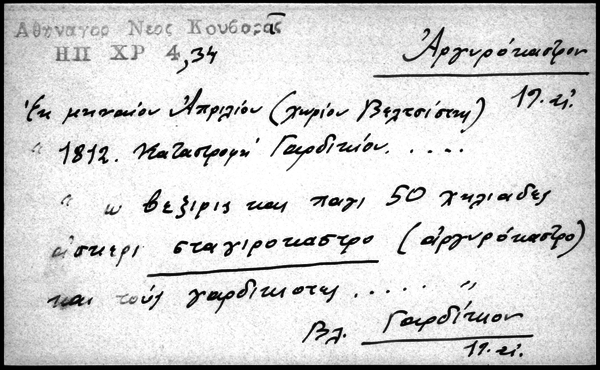 Αθηναγορ Νεος Κουβαρᾶς
ΗΠ ΧΡ 4,34
Ἀργυρόκαστρον
19. αἰ.
Ἐκ μηναίου Ἀπριλίου (χωρίον Βελτσίστης)
" 1812. Καταστροφή Γαρδικίου.....
" ω βεξιρις και παγι 50 χηλιαδες
ἀσκερι σταγιροκαστρο (ἀργυρόκαστρο)
και τούς γαρδικιοτες ..... "
Βλ. Γαρδίκιον
19. αἰ.